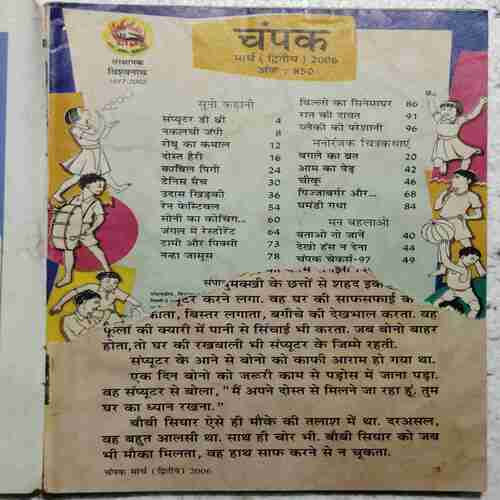 चंपक
मार्च (द्वितीय) 2006
अंक : 850
संस्थापक
विश्वनाथ
1917-2002
सुनो कहानी
संप्यूटर डी थ्री 4
नकलची जंपी 8
रोबू का कमाल 12
दोस्त हैरी 16
काबिल पिंगी 24
टेनिस मैच 30
उदास खिड़की 36
रेन फेस्टिवल 54
सोनी का कोचिंग... 60
जंगल में रेस्टोरेंट 64
टामी और पिक्सी 73
नन्हा जासूस 78
बिल्लो का सिनेमाघर 86
रात की दावत 91
ब्लैकी की परेशानी 96
मनोरंजक चित्रकथाएं
बगले का व्रत 20
आम का पेड़ 42
चीकू 46
पिज्जाबर्गर और... 68
घमंडी राधा 84
मन बहलाओ
बताओ तो जानें 40
देखो हंस न देना 44
चंपक चेकर्स-97 49
मुमक्खी के छत्तों से शहद इक
प्यूटर करने लगा. वह घर की साफसफाई के
बिस्तर लगाता, बगीचे की देखभाल करता. वह
फूलों की क्यारी में पानी से सिंचाई भी करता. जब बोनो बाहर
होता, तो घर की रखवाली भी संप्यूटर के जिम्मे रहती.
संप्यूटर के आने से बोनो को काफी आराम हो गया था.
एक दिन बोनो को जरूरी काम से पड़ोस में जाना पड़ा.
वह संप्यूटर से बोला, "मैं अपने दोस्त से मिलने जा रहा हूं, तुम
घर का ध्यान रखना."
बौबी सियार ऐसे ही मौके की तलाश में था. दरअसल,
वह बहुत आलसी था. साथ ही चोर भी. बौबी सियार को जब
भी मौका मिलता, वह हाथ साफ करने से न चूकता.
चंपक मार्च (द्वितीय) 2006